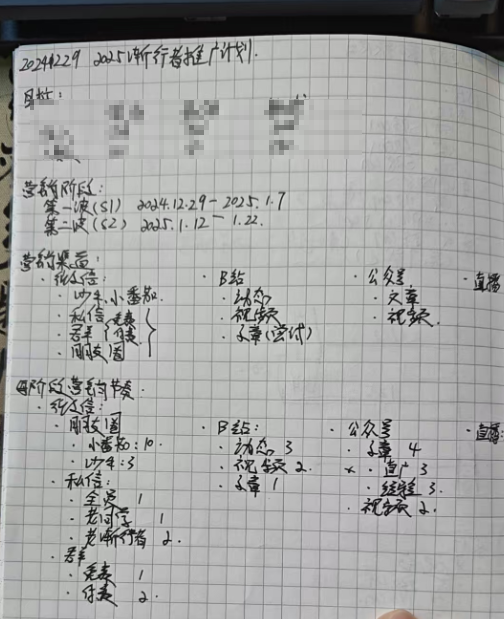 20241229 2025渐行者推广计划.
目标:
营销阶段:
第一波(S1) 2024.12.29-2025.1.7
第二波(S2) 2025.1.12-1.22.
营销渠道:
· 小番茄.
· 私信 免费
· 群 付费
· 朋友圈
· B站
· 动态
· 视频
· 文章(尝试)
· 公众号
· 文章
· 视频.
· 直播
每阶段营销节奏.
· 朋友圈
· 小番茄:10.
· 私信:
· 全员 1
· 老同学 1
· 老渐行者 2.
· 群
· 免费 1
· 付费 2.
· B站:
· 动态 3
· 视频 2.
· 文章 1
· 公众号
· 文章 4
× · 直广 3
· 经验 3.
· 视频 2.
· 直播: